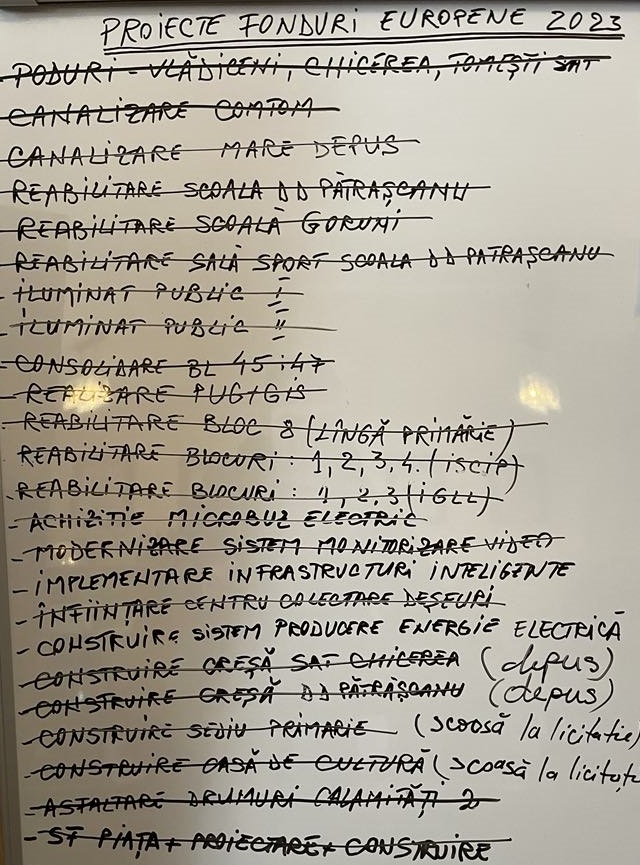 PROIECTE FONDURI EUROPENE 2023
- PODURI - VLĂDICENI, CHICEREA, TOMEȘTI SAT
- CANALIZARE COMTOM
- CANALIZARE MARE DEPUS
- REABILITARE SCOALA DD PĂTRAȘCANU
- REABILITARE SCOALĂ GORUNI
- REABILITARE SALĂ SPORT SCOALA DD PATRAȘCANU
- ILUMINAT PUBLIC I
- ILUMINAT PUBLIC II
- CONSOLIDARE BL 45 i 47
- REALIZARE PUG/GIS
- REABILITARE BLOC 8 (LÎNGĂ PRIMĂRIE)
REABILITARE BLOCURI: 1, 2, 3, 4. (ISCIP)
- REABILITARE BLOCURI: 1, 2, 3 (IGLL)
- ACHIZITIE MICROBUZ ELECTRIC
- MODERNIZARE SISTEM MONITORIZARE VIDEO
- IMPLEMENTARE INFRASTRUCTURI INTELIGENTE
- ÎNFIINȚARE CENTRU COLECTARE DEȘEURI
- CONSTRUIRE SISTEM PRODUCERE ENERGIE ELECTRICĂ
- CONSTRUIRE CREȘĂ SAT CHICEREA (depus)
- CONSTRUIRE CREȘĂ DD PĂTRĂȘCANU (depus)
- CONSTRUIRE SEDIU PRIMARIE (scoosă la licitatie)
- CONSTRUIRE CASĂ DE CULTURĂ (scoasă la licitație
- ASFALTARE DRUMURI CALAMITĂȚI 2
- SF PIAȚA + PROIECTARE + CONSTRUIRE